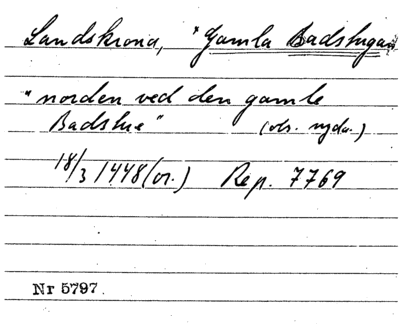 Landskrona, "Gamla Badstugan
"norden ved den gamle
Badstue" (obs. nyda.)
18/3 1448 (or.) Rep. 7769
Nr 5797.